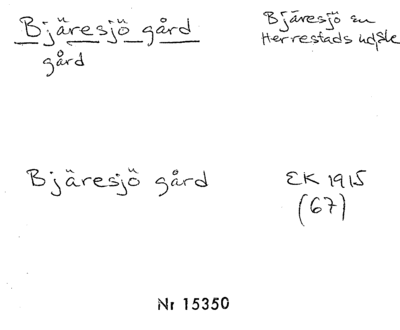 Bjäresjö gård
gård
Bjäresjö sn
Herrestads hd, Sk
Bjäresjö gård
EK 1915
(67)
Nr 15350